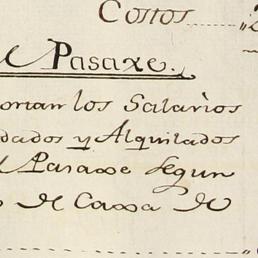 Costos
el Pasaxe.
orian los Salarios
dados y Alquilados
el Pasaxe segun
de Caxa de